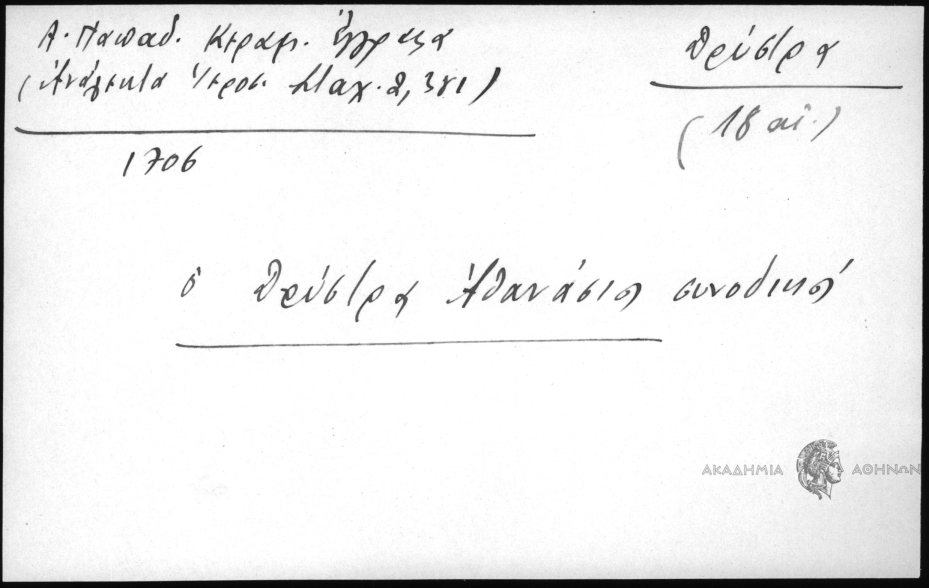 Α. Παπαδ. Κεραμ. Έγγραφα
(Ἀνάλεκτα Ἱεροσ. Σταχ. 2, 381)
Δρύστρα
(18 αἰ.)
1706
ὁ Δρύστρα Ἀθανάσιος συνοδικῶς
ΑΚΑΔΗΜΙΑ ΑΘΗΝΩΝ